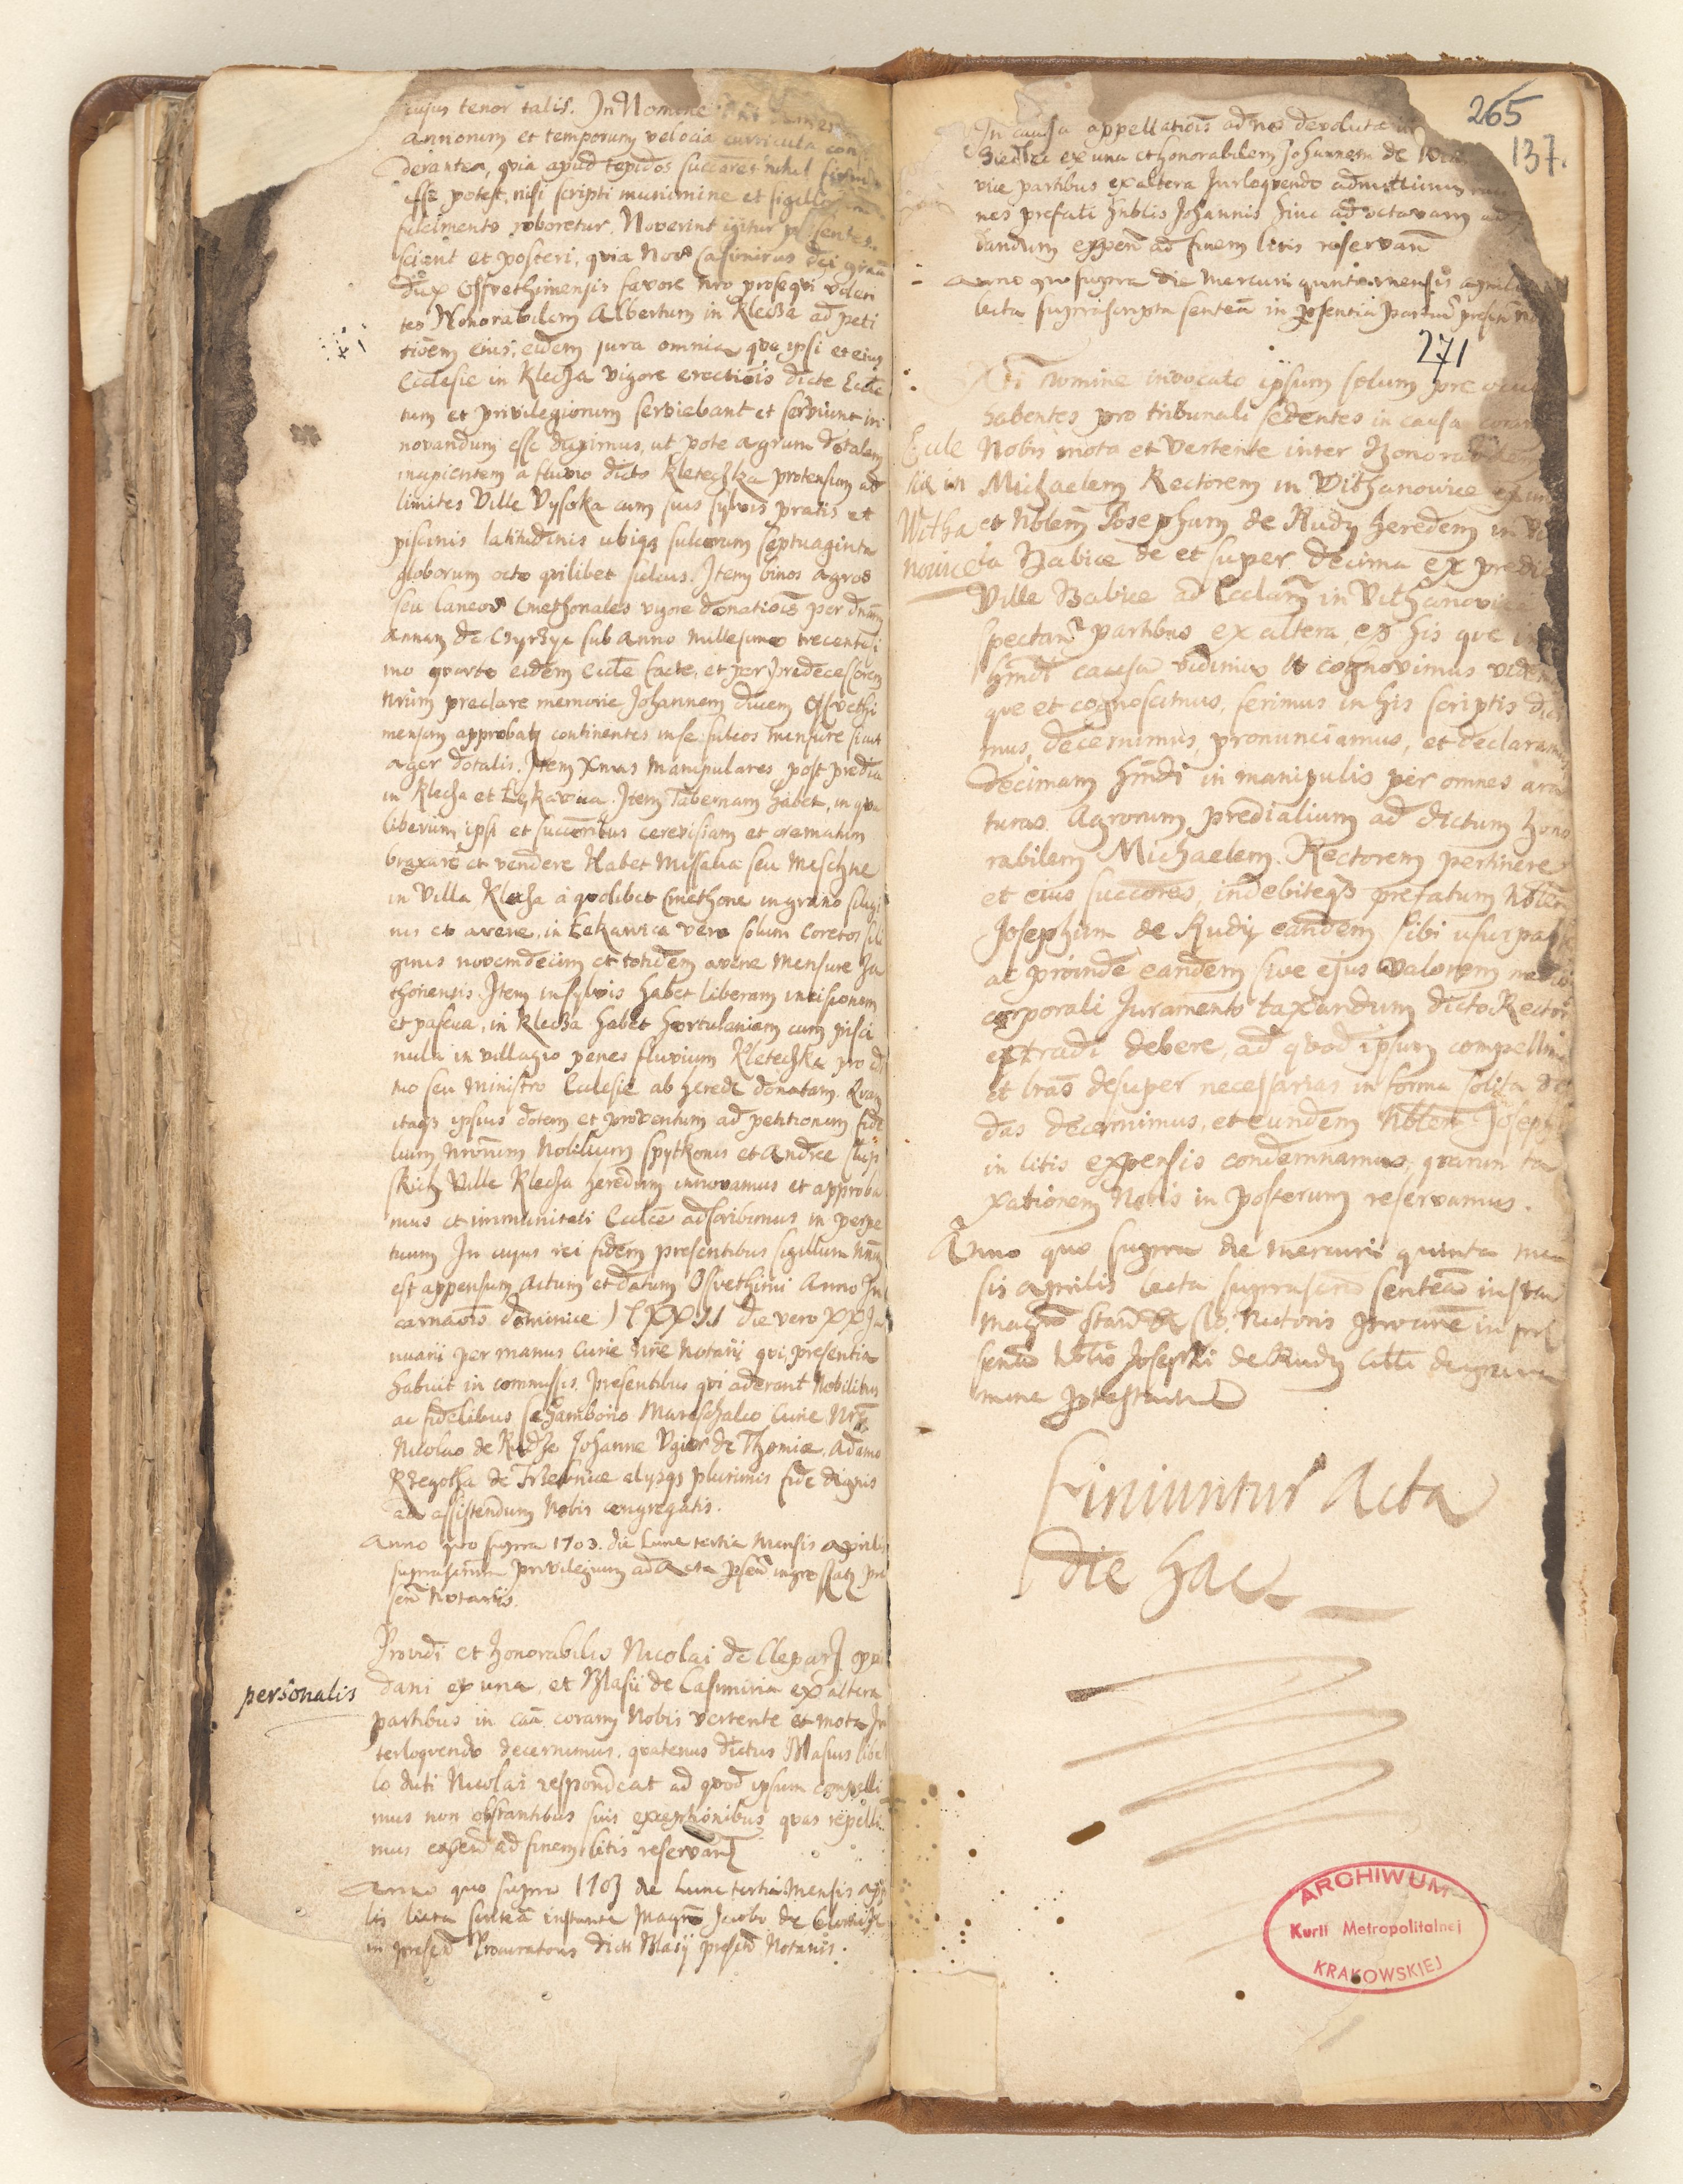 cujus tenor talis. In Nomine
annorum et temporum velocia curricula con
derantes, quia apud tepidos succores nihil firmū
esse potest, nisi scripti munimine et sigilli
fulcimento roboretur. Noverint igitur psentes
scient et posteri, quia Nos Casimirus dei graā
dux Osswethimensis favore nro prosequi volen
tes Honorabilem Albertum in Klecza ad peti
tiōem eius, eidem jura omnia, que ipsi et eius
Ecclesie in Klecza vigore erectiōis dicte Ecclē
tum et privilegiorum serviebant et serviunt in
novandum esse duximus, ut pote agrum dotalem
incipientem a fluvio dicto Kleteczka protensum ad
limites Ville Vysoka cum suis sylvis pratis et
piscinis latitudinis ubiqȝ sulcorum septuaginta
globorum octo quilibet sulcus. Item binos agros
seu laneos Cmethonales vigore donatiōis per dnām
Annam de sub anno millesimo trecentesi
mo quarto eidem Ecclē facte, et per predecessorem
nrūm preclare memorie Johannem ducem Osswethi
mensem approbatȝ continentes in se sulcos mensure sicut
ager dotalis. Item Xmas manipulares post predia
in Klecza et Łękawica. Item Tabernam habet, in qua
liberum ipsi et succoribus cerevisiam et crematum
braxare et vendere Habet Missalia seu Meschne
in Villa Klecza a quolibet Cmethone in grano silugi
nis et avene, in Łekawica vero solum Coretos sili
ginis novemdecim et totidem avene mensure Za
thoriensis. Item in sylvis habet liberam incisionem
et pascua, in Klecza habet hortulaniam cum pisci
nula in villagio penes fluvium Kleteczka pro edi
tuo seu ministro Ecclesie ab herede donatam. Quam
itaqȝ ipsius dotem et proventum ad petitionem fide
lium nrōrum Nobilium Spytkonis et Andree Slup
skich Ville Klecza heredum innovamus et approba
mus et immunitati Ecclē adscribimus in perpe
tuum In cujus rei fidem presentibus sigillum nrūm
est appensum Actum et datum Osvethimi Anno In
carnaōis dominice die vero XX Ja
nuarii per manus Curie nrē Notarii qui presentia
habuit in commissis. Presentibus qui aderant Nobilibus
ac fidelibus Schamborio Mareschalco Curie Nrē
Nicolao de Johanne Vgier de Adamo
de alysqȝ plurimis fide dignis
ad assistendum Nobis congregatis.
Anno quo supra 1703. die Lune tertia Mensis Aprilis
suprascriptum privilegium ad Acta psēn ingrossatȝ pre
sen̄ Notariis.
Providi et Honorabilis Nicolai de Clepar oppi
personalis
dani ex una, et Blasii de Casimiria ex altera
partibus in caā coram Nobis vertente et mota In
terloquendo decernimus, quatenus dictus Blasius libel
lo dicti Nicolai respondeat ad quod ipsum compelli
mus non obstantibus suis exeptionibus quas repelli
mus expeñ ad finem litis reservant
Anno quo supra 1703 die Lune tertia Mensis Apri
lis lecta senteā instante Magrō Jacobo de
in presen̄ Procuratoris dicti Blasÿ presen̄ Notariis.
265
137.
In causa appellatiōis ad nos devoluta
ex una et honorabilem Johannem de
vice partibus ex altera Interloquendo admittimus
nes prefati hnblis Johannis hinc ad octavam ad
dandum expeñ ad finem litis reservan̄
Anno quo supra die Mercurii quinta mensis aprilis
lecta suprascripta senteā in psentia partium presen̄
271
Xti nomine invocato ipsum solum pre ocu
habentes pro tribunali sedentes in causa coram
Eccle
Nobis mota et vertente inter Honorabilem
sia in
Michaelem Rectorem in Vithanowice ex un
Witha
et Nblem Josephum de Rudy heredem in Vi
nowice
la Babice de et super decima ex predio
Ville Babice ad Ecclam in Vithanovice
spectan̄ partibus ex altera, ex his que in
hmōi causa vidimus et cognovimus videmus
que et cognoscimus, ferimus in his scriptis dici
mus, decernimus, pronunciamus, et declaramus
decimam hmōi in manipulis per omnes ara
turas Agrorum predialium ad dictum hono
rabilem Michaelem Rectorem pertinere
et eius succores, indebiteqȝ prefatum Nblem
Josephum de Rudy eandem sibi usurpasse
ac proinde eandem sive ejus valorem medio
corporali Juramento taxandum dicto Rectori
extradi debere, ad quod ipsum compellimus
et lrās desuper necessarias in forma solita dan
das decernimus, et eundem Nblem Joseph
in litis expensis condemnamus, quarum ta
xationem Nobis in posterum reservamus.
Anno quo supra die Mercurii quinta men
sis Aprilis lecta suprascrip senteā instan
Magrō Stanō
sentia Nobis Josephi de Rudy
mine protestatur
Finiuntur Acta
die hac
ARCHIWUM
Kurii Metropolitalnej
KRAKOWSKIEJ